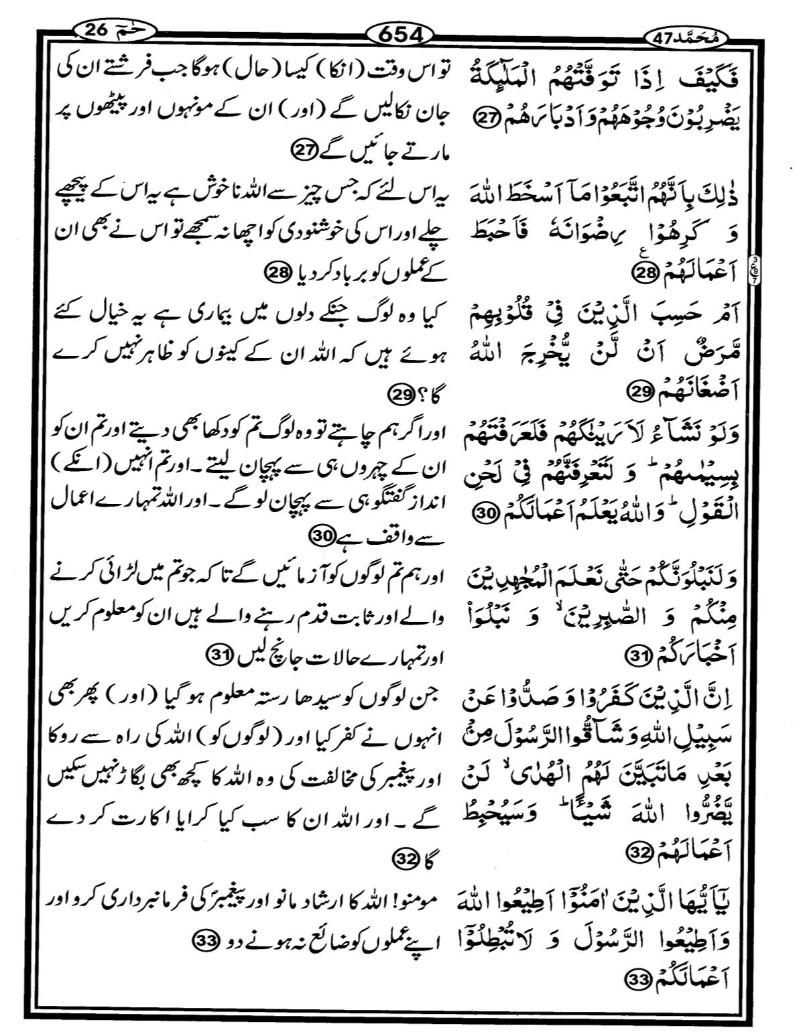 مُحَمَّد47
654
حٰمٓ 26
فَكَيۡفَ اِذَا تَوَفَّتۡهُمُ الۡمَلٰٓٮِٕكَةُ
يَضۡرِبُوۡنَ وُجُوۡهَهُمۡ وَاَدۡبَارَهُمۡ 27
ذٰلِكَ بِاَنَّهُمُ اتَّبَعُوۡا مَاۤ اَسۡخَطَ اللّٰهَ
وَ كَرِهُوۡا رِضۡوَانَهٗ فَاَحۡبَطَ
اَعۡمَالَهُمۡ 28
اَمۡ حَسِبَ الَّذِيۡنَ فِىۡ قُلُوۡبِهِمۡ
مَّرَضٌ اَنۡ لَّنۡ يُّخۡرِجَ اللّٰهُ
اَضۡغَانَهُمۡ 29
وَلَوۡ نَشَآءُ لَاَرَيۡنٰكَهُمۡ فَلَعَرَفۡتَهُمۡ
بِسِيۡمٰهُمۡ‌ؕ وَ لَتَعۡرِفَنَّهُمۡ فِىۡ لَحۡنِ
الۡقَوۡلِ‌ؕ وَاللّٰهُ يَعۡلَمُ اَعۡمَالَكُمۡ 30
وَلَنَبۡلُوَنَّكُمۡ حَتّٰى نَعۡلَمَ الۡمُجٰهِدِيۡنَ
مِنۡكُمۡ وَ الصّٰبِرِيۡنَ ۙ وَ نَبۡلُوَا۟
اَخۡبَارَكُمۡ 31
اِنَّ الَّذِيۡنَ كَفَرُوۡا وَ صَدُّوۡا عَنۡ
سَبِيۡلِ اللّٰهِ وَ شَآقُّوا الرَّسُوۡلَ مِنۡۢ
بَعۡدِ مَا تَبَيَّنَ لَهُمُ الۡهُدٰىۙ لَنۡ
يَّضُرُّوا اللّٰهَ شَيۡـــًٔا ؕ وَسَيُحۡبِطُ
اَعۡمَالَهُمۡ 32
يٰۤاَيُّهَا الَّذِيۡنَ اٰمَنُوۡۤا اَطِيۡعُوا اللّٰهَ
وَاَطِيۡعُوا الرَّسُوۡلَ وَ لَا تُبۡطِلُوۡۤا
اَعۡمَالَكُمۡ 33
تو اس وقت (انکا) کیسا (حال) ہوگا جب فرشتے ان کی
جان نکالیں گے (اور) ان کے مونہوں اور پیٹھوں پر
مارتے جائیں گے 27
یہ اس لئے کہ جس چیز سے اللہ ناخوش ہے یہ اس کے پیچھے
چلے اور اس کی خوشنودی کو اچھا نہ سمجھے تو اس نے بھی ان
کے عملوں کو برباد کر دیا 28
کیا وہ لوگ جنکے دلوں میں بیماری ہے یہ خیال کئے
ہوئے ہیں کہ اللہ ان کے کینوں کو ظاہر نہیں کرے
گا؟ 29
اور اگر ہم چاہتے تو وہ لوگ تم کو دکھا بھی دیتے اور تم ان کو
ان کے چہروں ہی سے پہچان لیتے۔ اور تم انہیں (انکے)
انداز گفتگو ہی سے پہچان لو گے۔ اور اللہ تمہارے اعمال
سے واقف ہے 30
اور ہم تم لوگوں کو آزمائیں گے تا کہ جو تم میں لڑائی کرنے
والے اور ثابت قدم رہنے والے ہیں ان کو معلوم کریں
اور تمہارے حالات جانچ لیں 31
جن لوگوں کو سیدھا رستہ معلوم ہو گیا (اور) پھر بھی
انہوں نے کفر کیا اور (لوگوں کو) اللہ کی راہ سے روکا
اور پیغمبر کی مخالفت کی وہ اللہ کا کچھ بھی بگاڑ نہیں سکیں
گے۔ اور اللہ ان کا سب کیا کرایا اکارت کر دے
گا 32
مومنو! اللہ کا ارشاد مانو اور پیغمبرؐ کی فرمانبرداری کرو اور
اپنے عملوں کو ضائع نہ ہونے دو 33